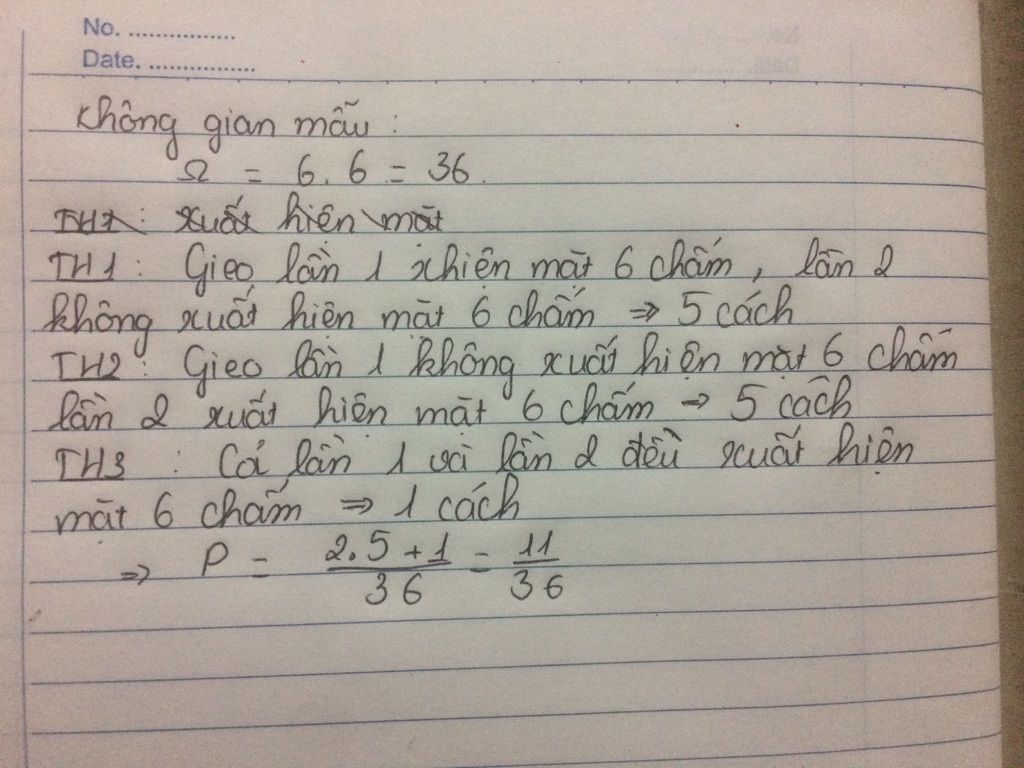 No. ................
Date. ................
Không gian mẫu :
Ω = 6. 6 = 36.
TH1: xuất hiện mặt
TH1 : Gieo lần 1 xhiện mặt 6 chấm, lần 2
không xuất hiện mặt 6 chấm ⇒ 5 cách
TH2 : Gieo lần 1 không xuất hiện mặt 6 chấm
lần 2 xuất hiện mặt 6 chấm ⇒ 5 cách
TH3 : Cả lần 1 và lần 2 đều xuất hiện
mặt 6 chấm ⇒ 1 cách
⇒ P = (2.5 + 1)/36 = 11/36